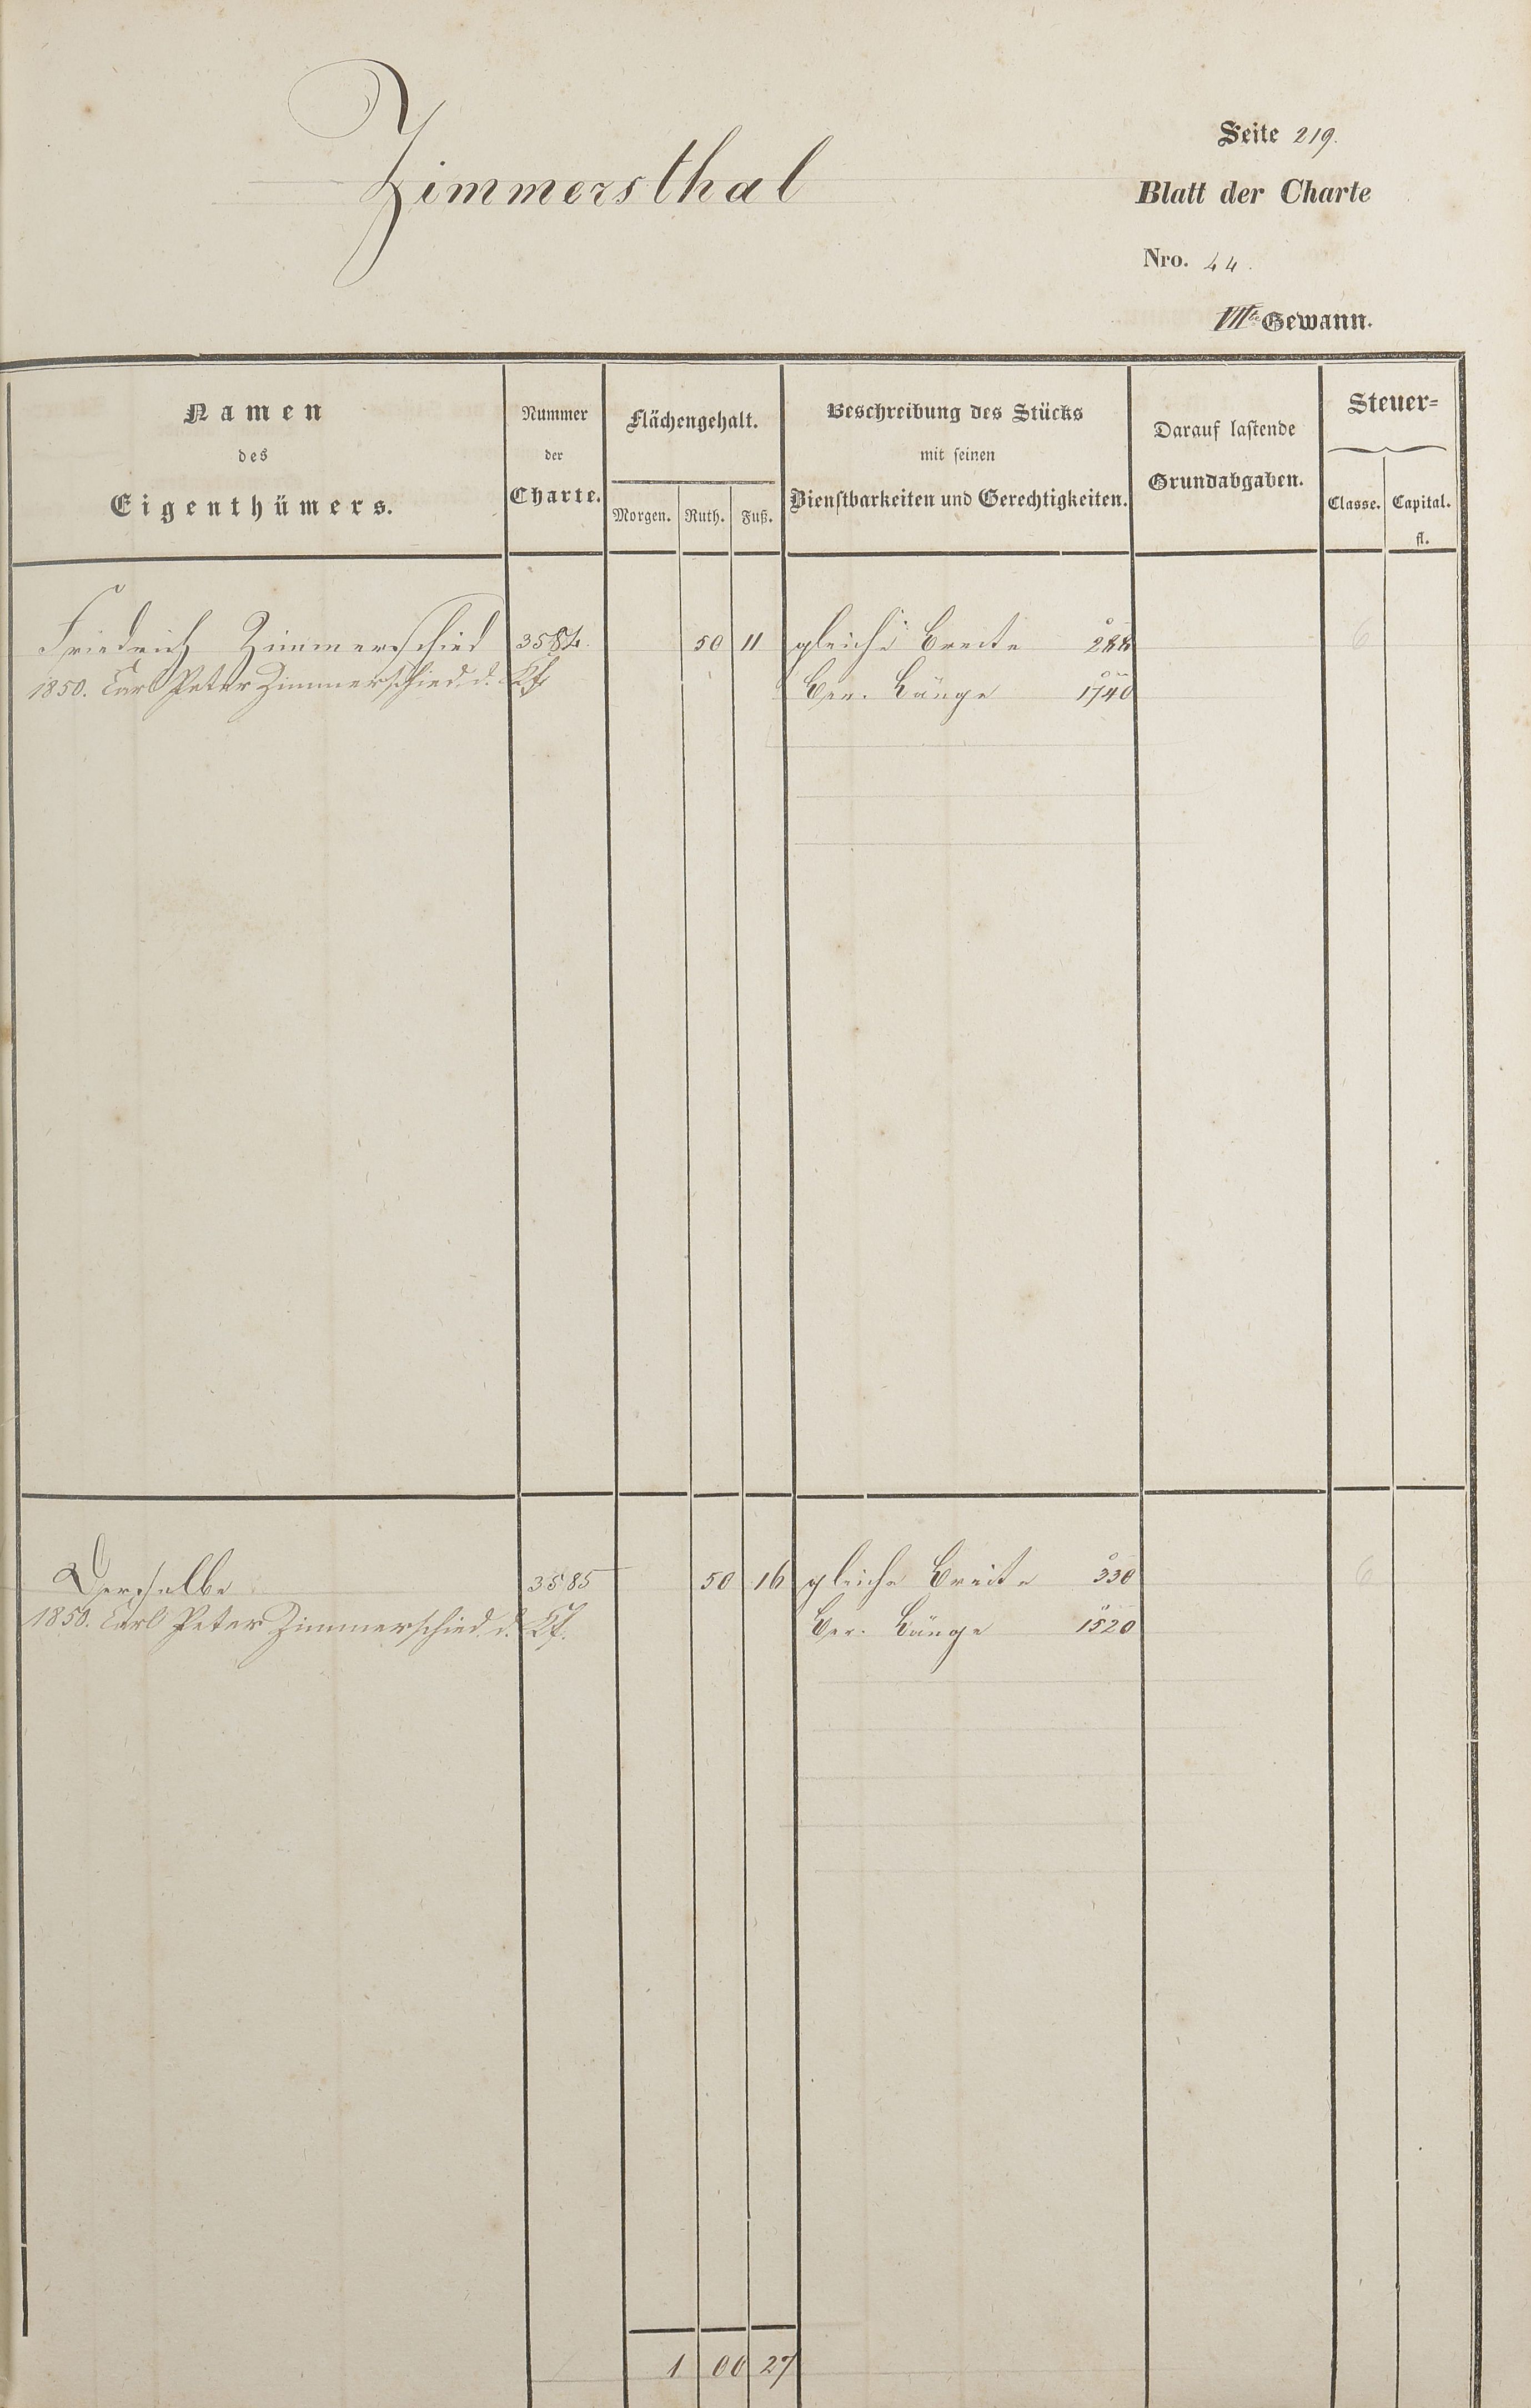 Zimmersthal
Seite 219.
Blatt der Charte
Nro. 44.
VIIte Gewann.
Namen
des
Eigenthümers.
Nummer
der
Charte.
Flächengehalt.
Morgen. Ruth. Fuß.
Beschreibung des Stücks
mit seinen
Dienstbarkeiten und Gerechtigkeiten.
Darauf lastende
Grundabgaben.
Steuer=
Classe. Capital.
fl.
Friedrich Zimmerschied 3584. 50 11 gleiche Breite 288 6
1850. Carl Peter Zimmerschied. d. Kf. Ber. Länge 1740
Derselbe 3585 50 16 gleiche Breite 330 6
1850. Carl Peter Zimmerschied. d. Kf. Ber. Länge 1520
1 00 27